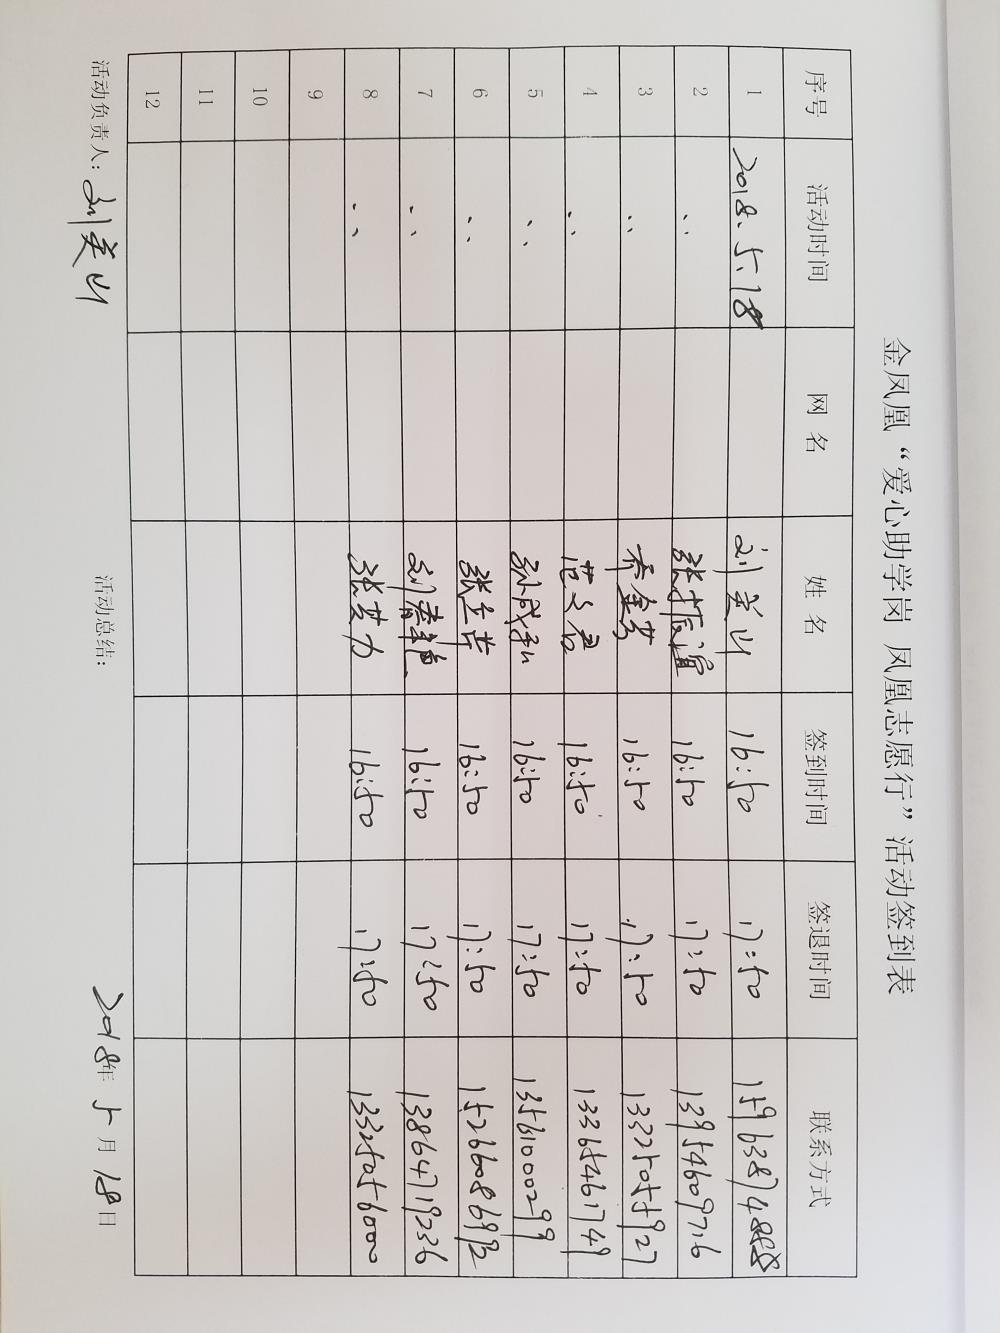 金凤凰“爱心助学岗 凤凰志愿行”活动签到表
序号 活动时间 网名 姓名 签到时间 签退时间 联系方式
1 2018.5.18 刘美山 16:50 17:50
2 〃 张振道 16:50 17:50 13954609716
3 〃 16:50 17:50 13325055927
4 〃 范文君 16:50 17:50 13365461749
5 〃 孙成和 16:50 17:50 13561000299
6 〃 16:50 17:50 15266086992
7 〃 刘春艳 16:50 17:50 13864719236
8 〃 张梦力 16:50 17:50 13325056000
9
10
11
12
活动负责人: 刘美山 活动总结: 2018年5月18日